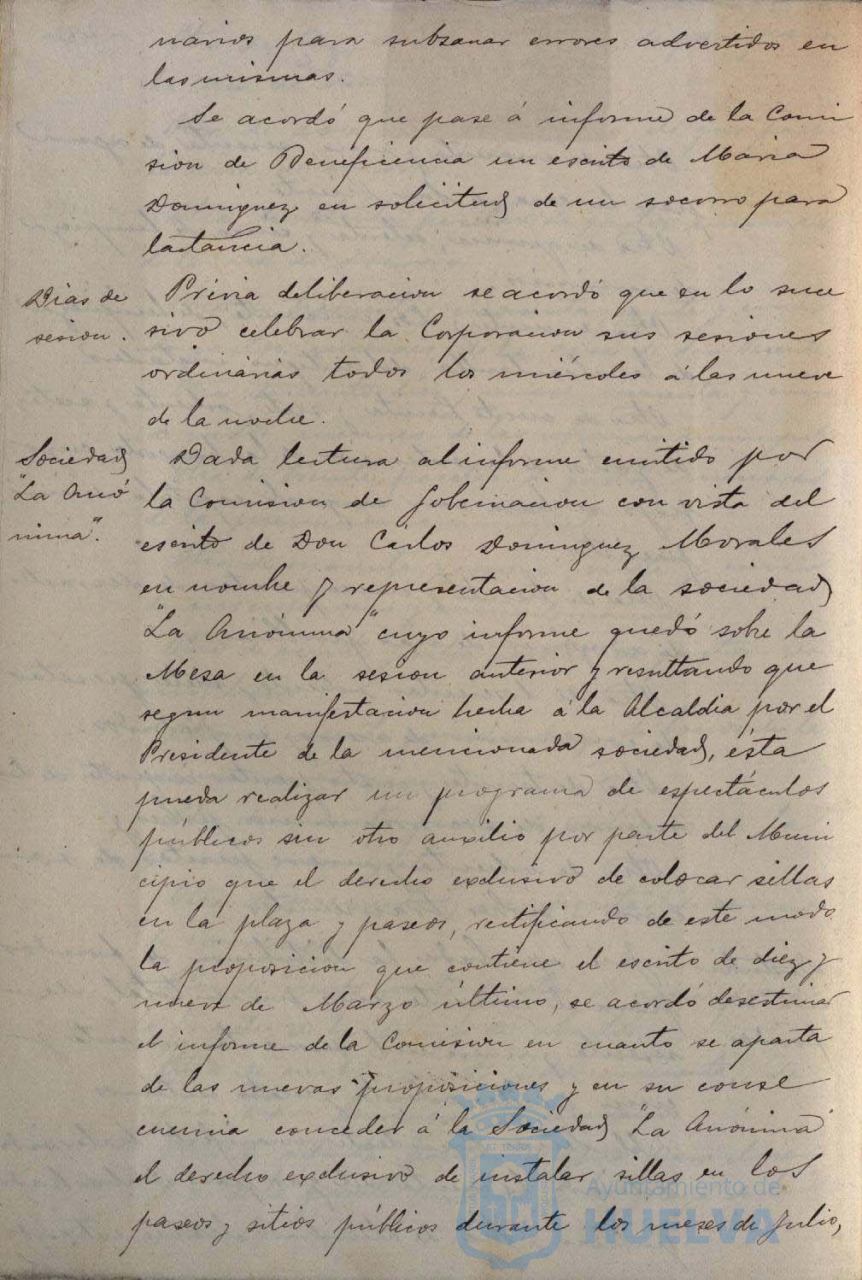 narios para subsanar errores advertidos en
las mismas.
Se acordó que pase á informe de la Comi
sion de Beneficencia un escrito de Maria
Dominguez en solicitud de un socorro para
lactancia.
Dias de
sesion.
Previa deliberacion se acordó que en lo suce
sivo celebrar la Corporacion sus sesiones
ordinarias todos los miércoles á las nueve
de la noche.
Sociedad
"La Anó
nima".
Dada lectura al informe emitido por
la Comision de Gobernacion con vista del
escrito de Don Cárlos Dominguez Morales
en nombre y representacion de la sociedad
"La Anónima" cuyo informe quedó sobre la
Mesa en la sesion anterior y resultando que
segun manifestacion hecha á la Alcaldia por el
Presidente de la mencionada sociedad, ésta
pueda realizar un programa de espectáculos
públicos sin otro auxilio por parte del Muni
cipio que el derecho exclusivo de colocar sillas
en la plaza y paseos, rectificando de este modo
la proposicion que contiene el escrito de diez y
nueve de Marzo último, se acordó desestimar
el informe de la Comision en cuanto se aparta
de las nuevas proposiciones y en su conse
cuencia conceder á la Sociedad "La Anónima"
el derecho exclusivo de instalar sillas en los
paseos y sitios públicos durante los meses de Julio,
Ayuntamiento de
HUELVA